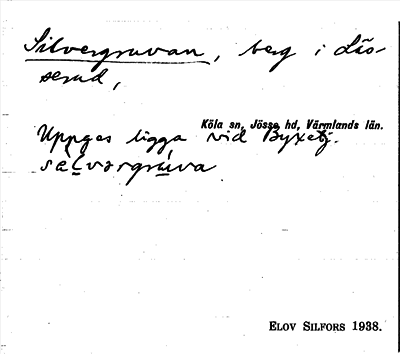 Silvergruvan, berg i Läs-
serud,
Köla sn, Jösse hd, Värmlands län.
Uppges ligga vid Byxetj.
sælvərgru̇va
ELOV SILFORS 1938.